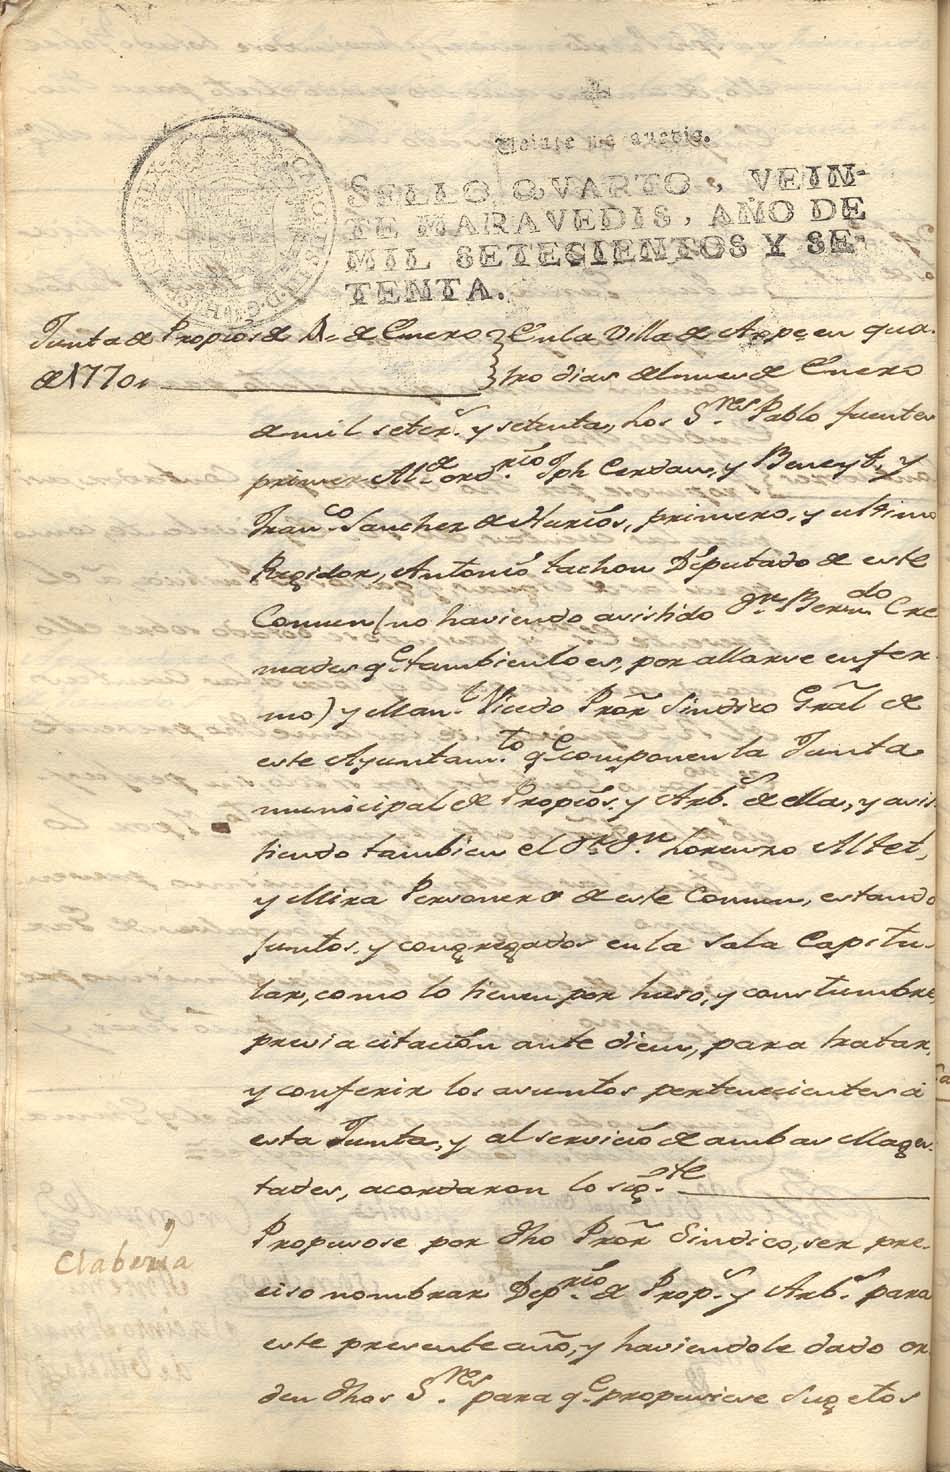 Veinte maravedis.
SELLO QVARTO, VEIN-
TE MARAVEDIS, AÑO DE
MIL SETECIENTOS Y SE-
TENTA.
Junta de Propios de 4 de Enero
de 1770,,
En la Villa de Aspe en qua-
tro dias del mes de Enero
de mil setecs. y setenta, los Sres. Pablo fuentes
primer Alde. ordrio. Jph Cerdan, y Beneyto, y
Franco. Sanchez de Nuncios, primero, y ultimo
Regidor, Antonio tachon Diputado de este
Comun (no haviendo asistido Dn. Berndo. Cre
mades qe. tambien lo es, por allarse enfer-
mo) y Manl. Vicedo Pror Sindico Gral de
este Ayuntamto. qe. componen la Junta
municipal de Propios, y Arbs. de ella, y asis
tiendo tambien el Dr. Dn. Lorenzo Altet,
y Mira Personero de este Comun, estando
juntos, y congregados en la Sala Capitu-
lar, como lo tienen por huso, y constumbre,
previa citación ante diem, para tratar,
y conferir los asuntos pertenecientes á
esta Junta, y al servicio de ambas Mages-
tades, acordaron lo sigte.
Clabería
Propusose por dho Pror Sindico, ser pre-
ciso nombrar Deprio. de Props. y Arbs. para
este presente año, y haviendole dado or
den dhos Sres. para qe. propusiese sugetos